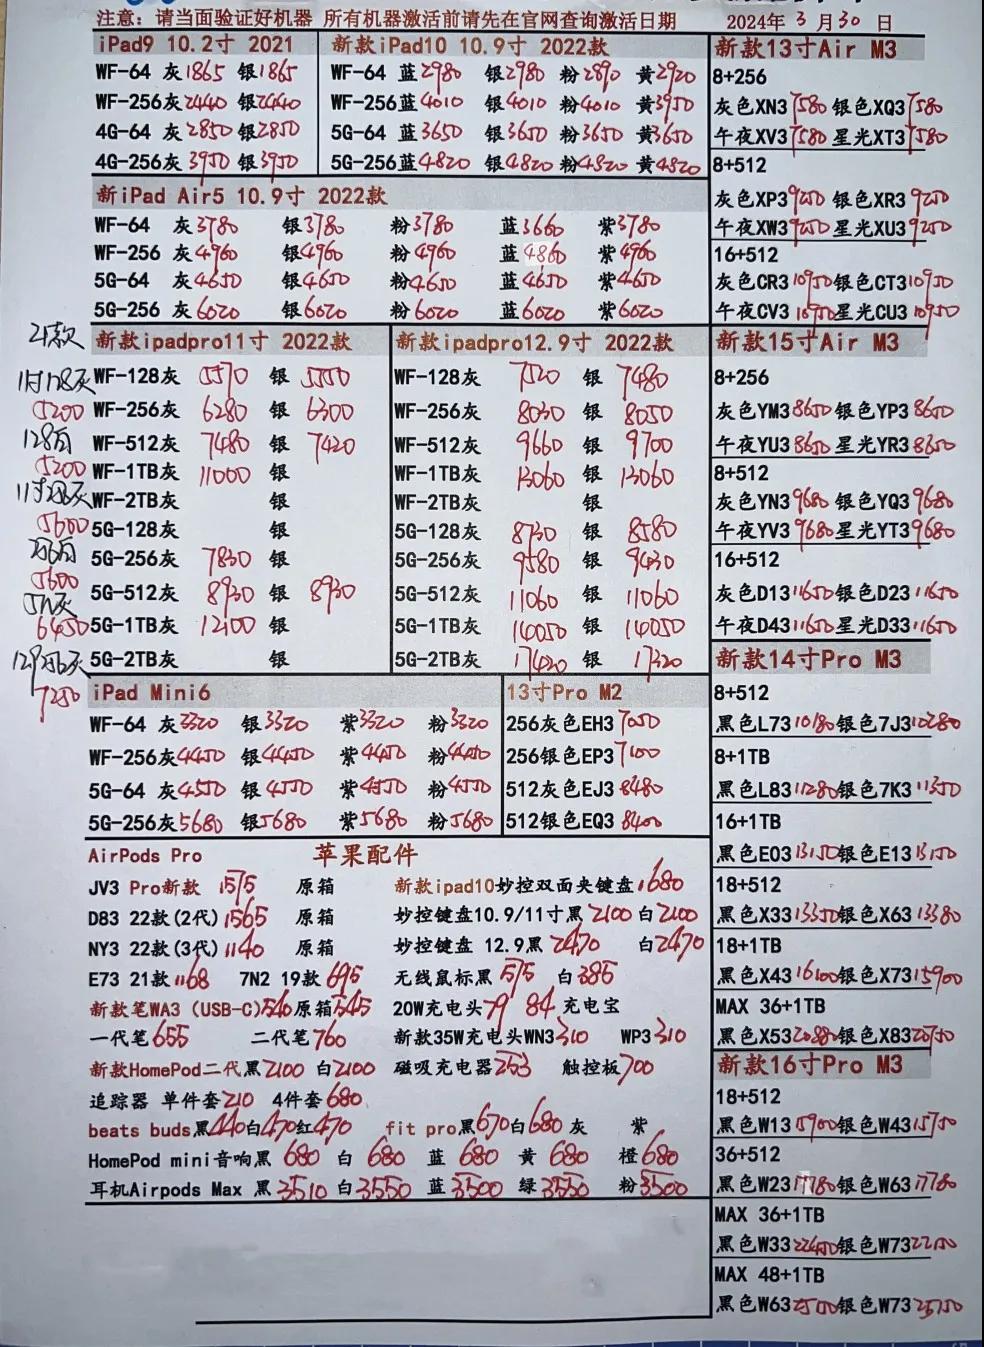 注意: 请当面验证好机器 所有机器激活前请先在官网查询激活日期 2024年3月30日
iPad9 10.2寸 2021
WF-64 灰1865 银1865
WF-256灰2440 银2440
4G-64 灰2850 银2850
4G-256灰3950 银3950
新款iPad10 10.9寸 2022款
WF-64 蓝2980 银2980 粉2890 黄2920
WF-256蓝4010 银4010 粉4010 黄3950
5G-64 蓝3650 银3650 粉3650 黄3650
5G-256蓝4820 银4820 粉4820 黄4820
新iPad Air5 10.9寸 2022款
WF-64 灰3780 银3780 粉3780 蓝3660 紫3780
WF-256 灰4960 银4960 粉4960 蓝4860 紫4960
5G-64 灰4650 银4650 粉4650 蓝4650 紫4650
5G-256 灰6020 银6020 粉6020 蓝6020 紫6020
21款
11寸128灰
5200
128白
5200
5600
256白
5600
6450
7250
新款ipadpro11寸 2022款
WF-128灰 5570 银 5550
WF-256灰 6280 银 6300
WF-512灰 7480 银 7420
WF-1TB灰 11000 银
WF-2TB灰 银
5G-128灰 银
5G-256灰 7830 银
5G-512灰 8930 银 8930
5G-1TB灰 12100 银
5G-2TB灰 银
新款ipadpro12.9寸 2022款
WF-128灰 7520 银 7480
WF-256灰 8030 银 8050
WF-512灰 9660 银 9700
WF-1TB灰 13060 银 13060
WF-2TB灰 银
5G-128灰 8730 银 8580
5G-256灰 9580 银 9430
5G-512灰 11060 银 11060
5G-1TB灰 14050 银 14050
5G-2TB灰 17420 银 17320
iPad Mini6
WF-64 灰3320 银3320 紫3320 粉3320
WF-256灰4450 银4450 紫4450 粉4450
5G-64 灰4550 银4550 紫4550 粉4550
5G-256灰5680 银5680 紫5680 粉5680
13寸Pro M2
256灰色EH3 7050
256银色EP3 7100
512灰色EJ3 8480
512银色EQ3 8400
AirPods Pro 苹果配件
JV3 Pro新款 1575 原箱 新款ipad10妙控双面夹键盘1680
D83 22款(2代)1565 原箱 妙控键盘10.9/11寸黑2100 白2100
NY3 22款(3代)1140 原箱 妙控键盘 12.9黑 2470 白2470
E73 21款1168 7N2 19款695 无线鼠标黑 575 白385
新款笔WA3 (USB-C)540原箱545 20W充电头79 84 充电宝
一代笔655 二代笔760 新款35W充电头WN3 310 WP3 310
新款HomePod二代黑2100 白2100 磁吸充电器253 触控板700
追踪器 单件套210 4件套680
beats buds黑440白470红470 fit pro黑670白680 灰 紫
HomePod mini音响黑 680 白 680 蓝 680 黄 680 橙680
耳机Airpods Max 黑 3510 白3550 蓝 3500 绿 3550 粉3500
新款13寸Air M3
8+256
灰色XN3 7580 银色XQ3 7580
午夜XV3 7580 星光XT3 7580
8+512
灰色XP3 9250 银色XR3 9250
午夜XW3 9250 星光XU3 9250
16+512
灰色CR3 10950 银色CT3 10950
午夜CV3 10950 星光CU3 10950
新款15寸Air M3
8+256
灰色YM3 8650 银色YP3 8650
午夜YU3 8650 星光YR3 8650
8+512
灰色YN3 9680 银色YQ3 9680
午夜YV3 9680 星光YT3 9680
16+512
灰色D13 11650 银色D23 11650
午夜D43 11650 星光D33 11650
新款14寸Pro M3
8+512
黑色L73 10180 银色7J3 10280
8+1TB
黑色L83 11280 银色7K3 11350
16+1TB
黑色E03 13150 银色E13 13150
18+512
黑色X33 13350 银色X63 13380
18+1TB
黑色X43 16100 银色X73 15900
MAX 36+1TB
黑色X53 20880 银色X83 20750
新款16寸Pro M3
18+512
黑色W13 15900 银色W43 15750
36+512
黑色W23 17780 银色W63 17780
MAX 36+1TB
黑色W33 22450 银色W73 22150
MAX 48+1TB
黑色W63 25100 银色W73 25150